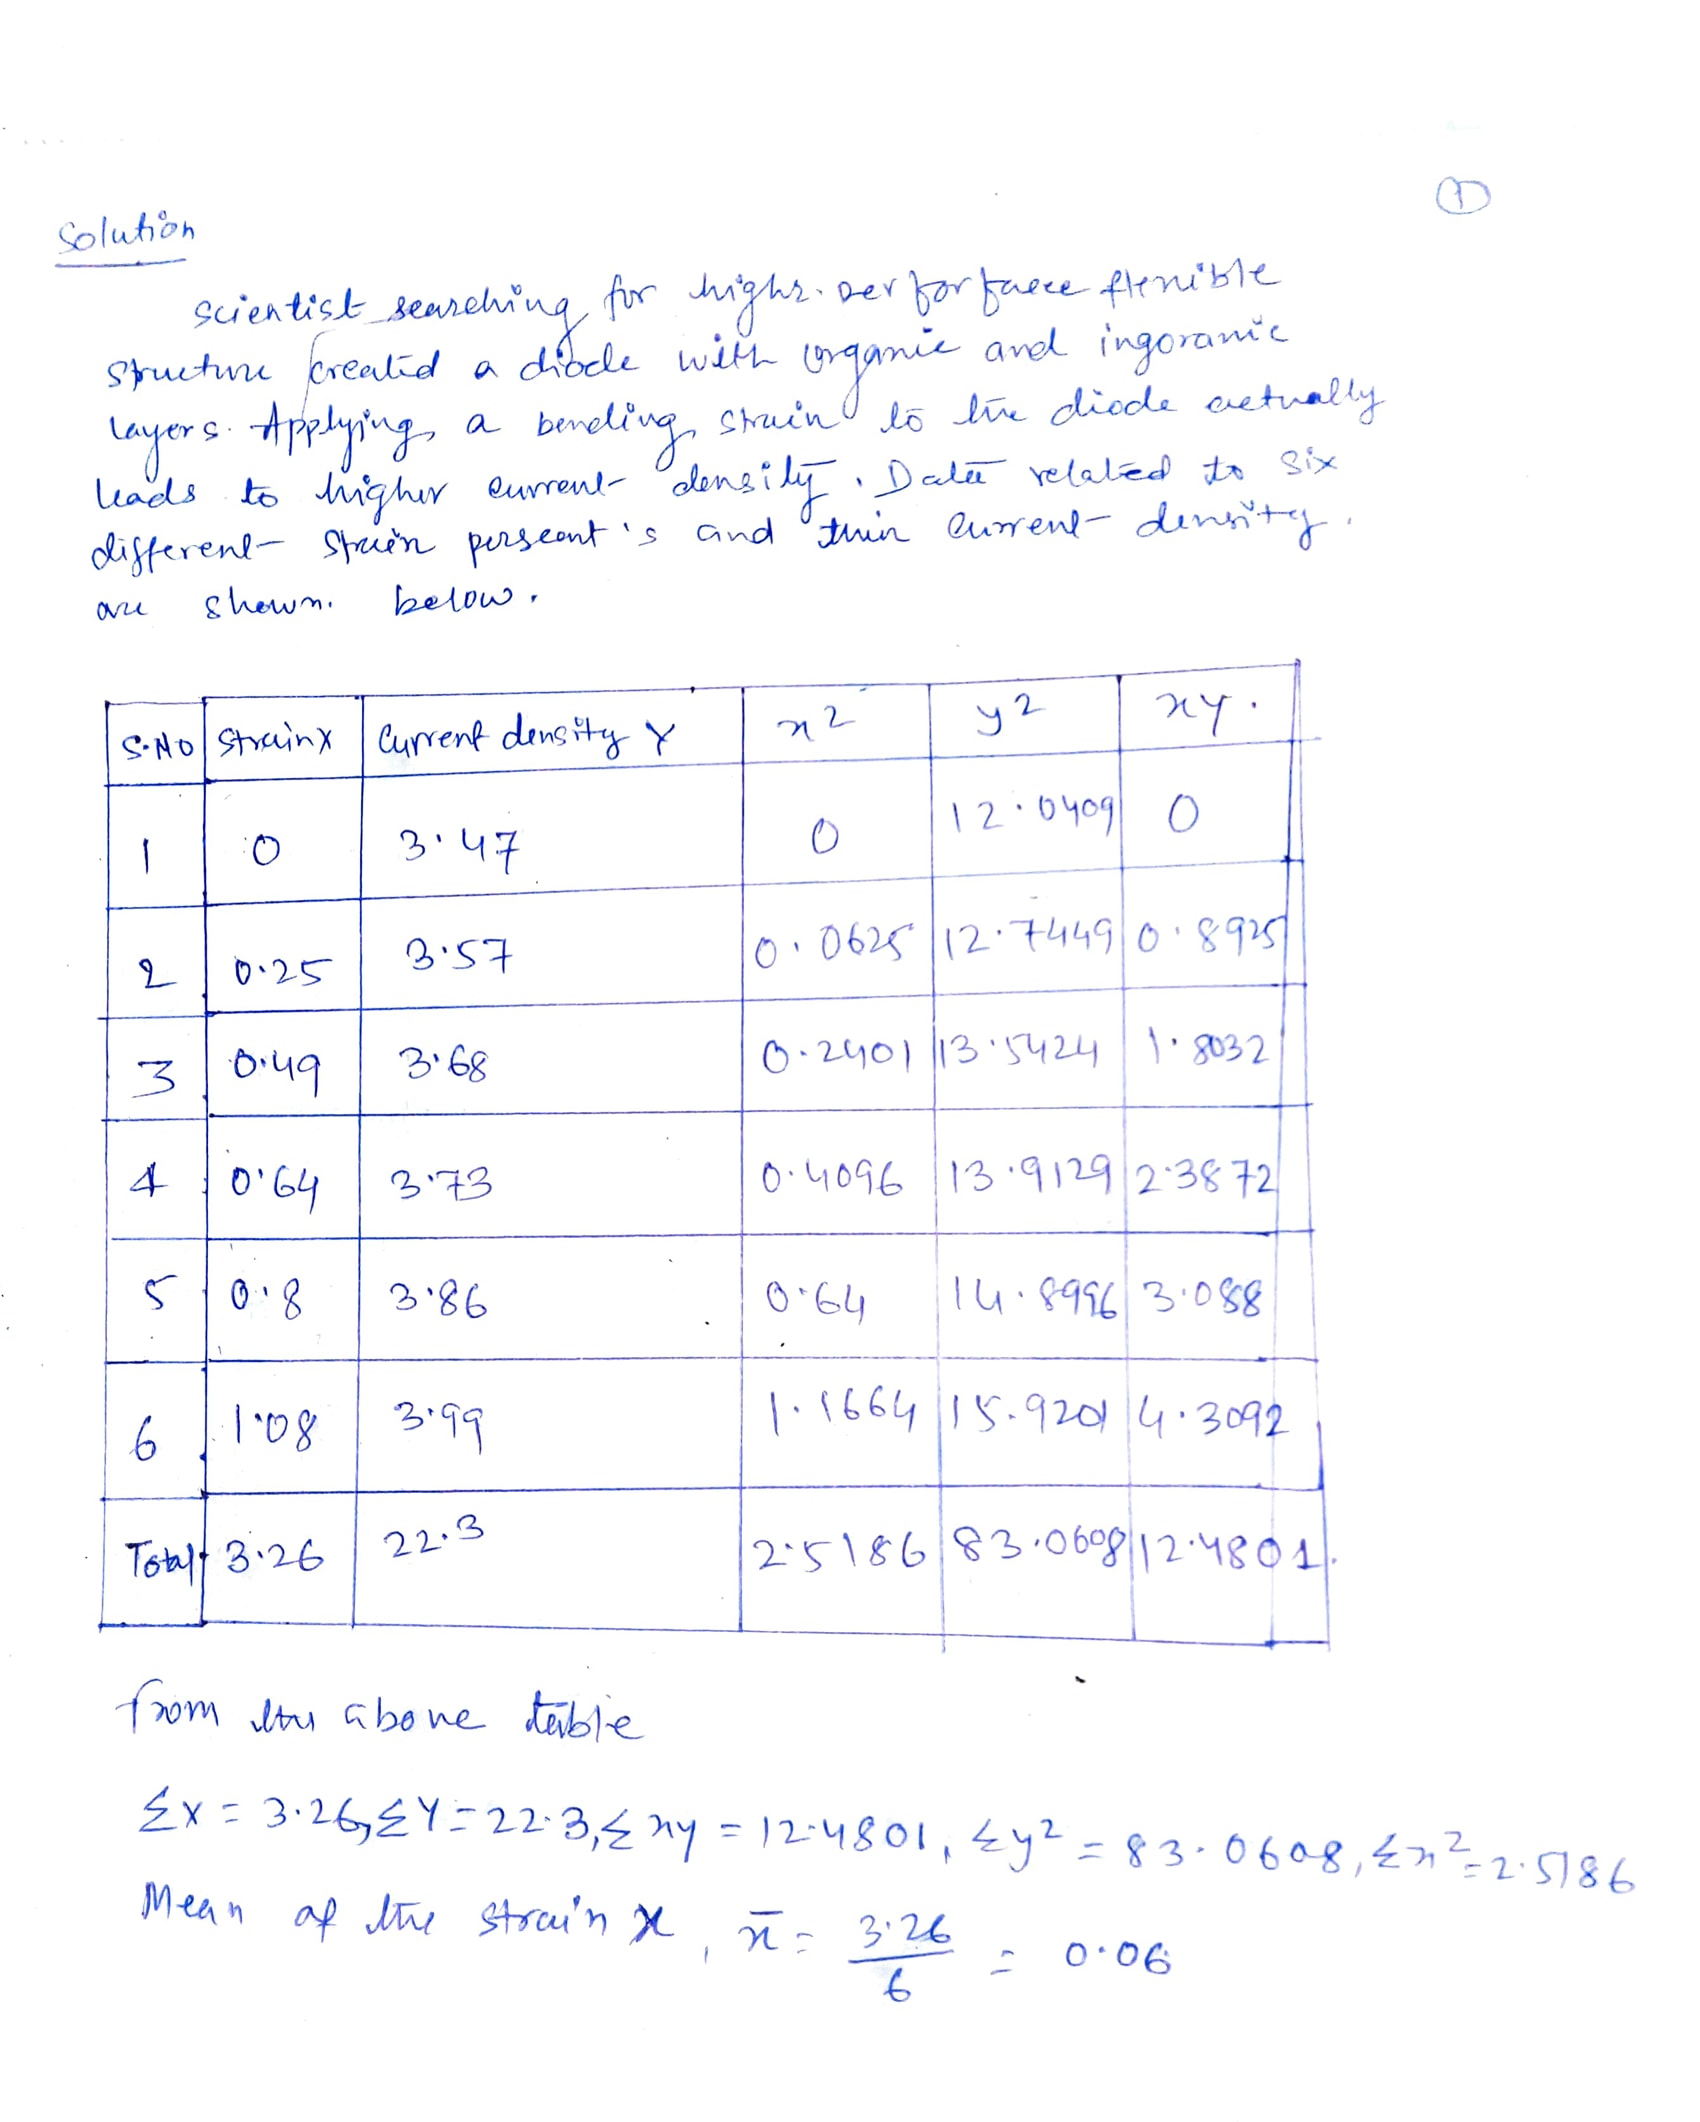 ①
Solution
scientist searching for highr. flenible
structure created a diode with organic and ingoranic
layers. Applying a bending strain to the diode actually
leads to higher current density. Data related to six
different strain perseent's and thin current density.
are shown. below.
S.NO strain x Current density Y x2 y2 xy.
1 0 3.47 0 12.0409 0
2 0.25 3.57 0.0625 12.7449 0.8925
3 0.49 3.68 0.2401 13.5424 1.8032
4 0.64 3.73 0.4096 13.9129 2.3872
5 0.8 3.86 0.64 14.8996 3.088
6 1.08 3.99 1.1664 15.9201 4.3092
Total 3.26 22.3 2.5186 83.0608 12.4801.
from the above table
Σx = 3.26, ΣY = 22.3, Σxy = 12.4801, Σy² = 83.0608, Σx² = 2.5186
Mean of the strain x, x̄ = 3.26/6 = 0.06